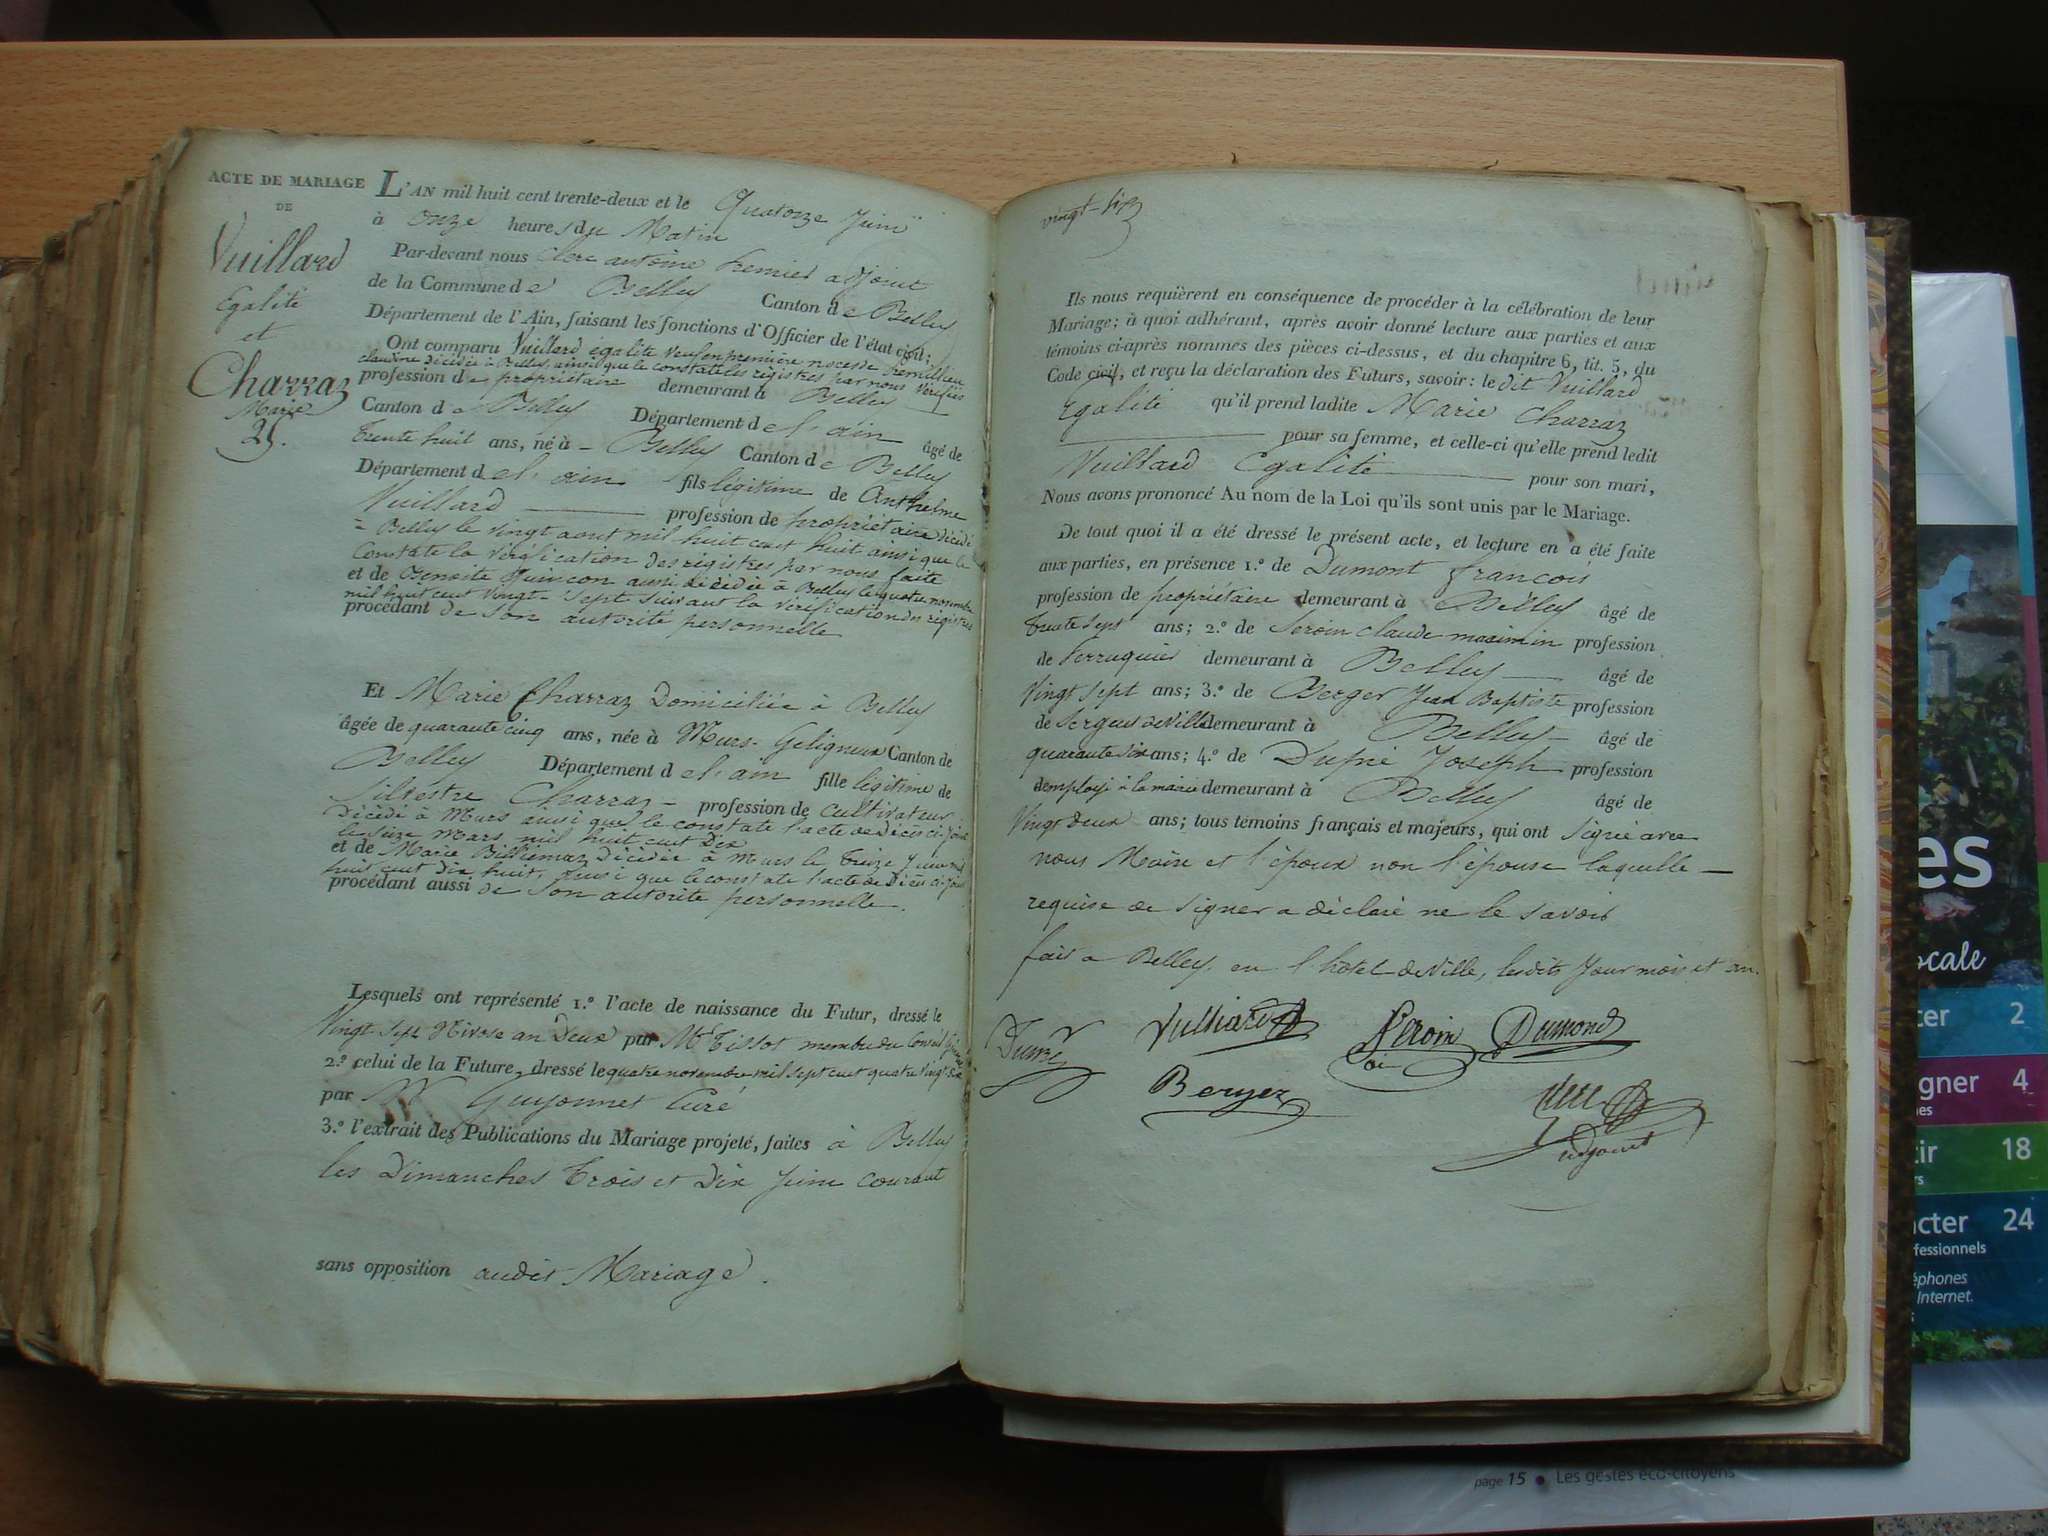 ACTE DE MARIAGE
DE
Vuillard
Egalité
et
Charraz
Marie
25.
L'AN mil huit cent trente-deux et le Quatorze Juin
à onze heures du Matin
Par-devant nous Clerc antoine Premier adjoint
de la Commune de Belley Canton de Belley
Département de l'Ain, faisant les fonctions d'Officier de l'état civil;
Ont comparu Vuillard égalité veuf en première noces de
claudine décédée à Belley, ainsi que le constate les registres par nous vérifiés
profession de propriétaire demeurant à Belley
Canton de Belley Département de l'ain âgé de
trente huit ans, né à Belley Canton de Belley
Département de l'ain fils légitime de Anthelme
Vuillard profession de propriétaire décédé
à Belley le vingt aout mil huit cent huit ainsi que le
Constate la vérification des registres par nous faite
et de Benoite Quincon aussi décédée à Belley le quatre novembre
mil huit cent vingt-sept suivant la vérification des registres
procédant de son autorité personnelle
Et Marie Charraz Domiciliée à Belley
âgée de quarante cinq ans, née à Murs-Geligneux Canton de
Belley Département de l'ain fille légitime de
Silvestre Charraz profession de cultivateur
Décédé à Murs ainsi que le constate l'acte de Décès ci-joint
le seize Mars mil huit cent Dix
et de Marie Billiemaz Décédée à Murs le treize
huit cent dix huit, ainsi que le constate l'acte de Décès ci-joint
procédant aussi de son autorité personnelle.
Lesquels ont représenté 1.º l'acte de naissance du Futur, dressé le
Vingt sept Nivose an Deux par Mr Tissot membre du Conseil
2.º celui de la Future, dressé le quatre novembre mil sept cent quatre vingt six
par Mr Guyonnet Curé
3.º l'extrait des Publications du Mariage projeté, faites à Belley
les Dimanches trois et dix juin courant
sans opposition audit Mariage.
vingt-six
Ils nous requièrent en conséquence de procéder à la célébration de leur
Mariage; à quoi adhérant, après avoir donné lecture aux parties et aux
témoins ci-après nommés des pièces ci-dessus, et du chapitre 6, tit. 5, du
Code civil, et reçu la déclaration des Futurs, savoir: le dit Vuillard
Egalité qu'il prend ladite Marie Charraz
pour sa femme, et celle-ci qu'elle prend ledit
Vuillard Egalité pour son mari,
Nous avons prononcé Au nom de la Loi qu'ils sont unis par le Mariage.
De tout quoi il a été dressé le présent acte, et lecture en a été faite
aux parties, en présence 1.º de Dumont françois
profession de propriétaire demeurant à Belley âgé de
trente sept ans; 2.º de Peroin claude maximin profession
de Perruquier demeurant à Belley âgé de
Vingt sept ans; 3.º de Berger Jean Baptiste profession
de Sergent de Ville demeurant à Belley âgé de
quarante six ans; 4.º de Dupré Joseph profession
d'employé à la mairie demeurant à Belley âgé de
Vingt deux ans; tous témoins français et majeurs, qui ont signé avec
nous Maire et l'époux non l'épouse laquelle
requise de signer a déclaré ne le savoir
fait à Belley, en l'hotel de Ville, lesdits Jour mois et an.
Vulliard
Peroin
Dumond
Berger
Clerc
adjoint
es
ocale
cter 2
gner 4
nes
tir 18
rs
acter 24
fessionnels
éphones
Internet.
page 15 • Les gestes éco-citoyens